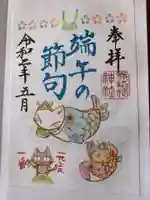 奉拝
端午の
節句
令和七年五月